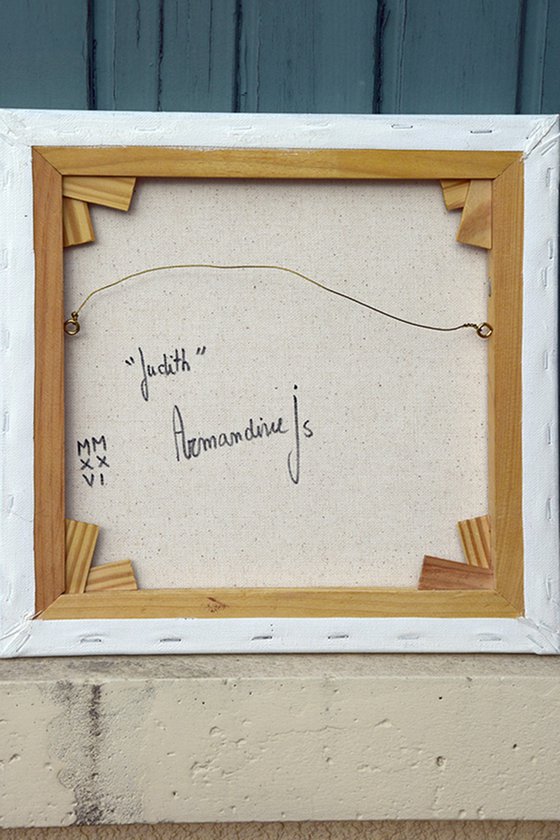 "Judith"
Armandine Js
MM
XX
VI